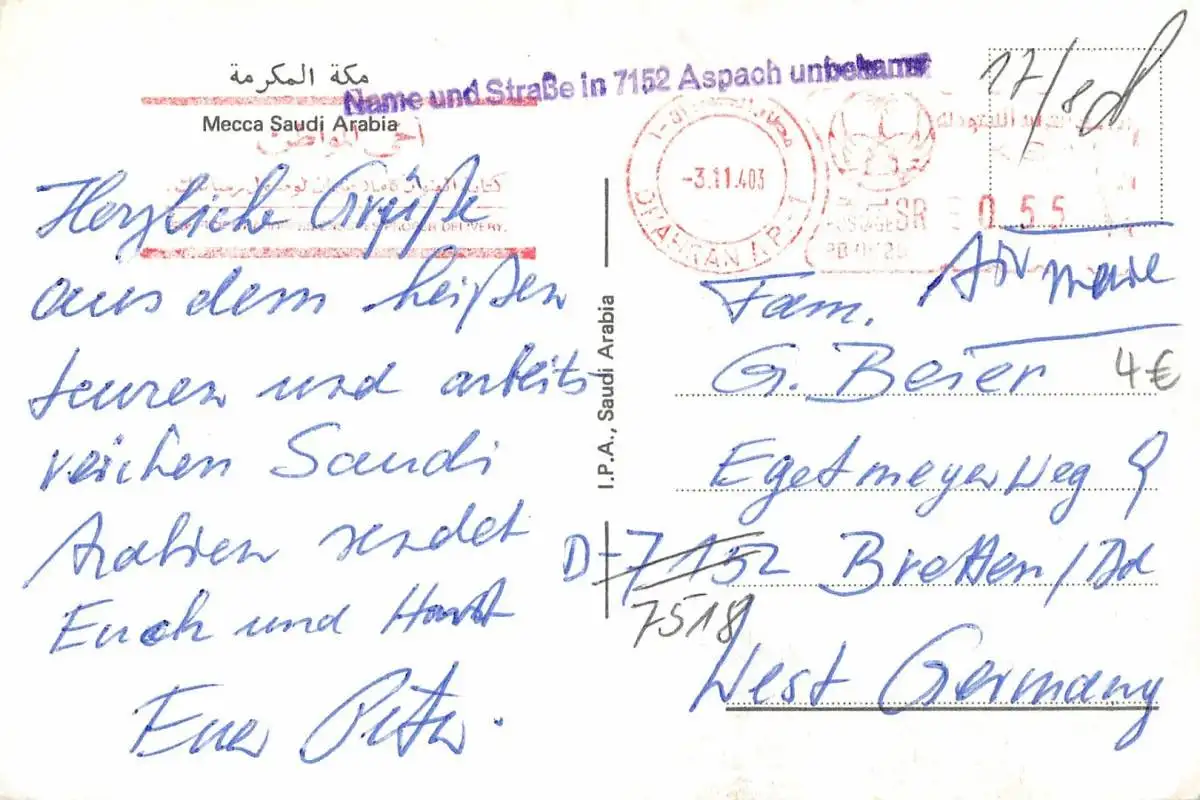 مكة المكرمة
Mecca Saudi Arabia
Name und Straße in 7152 Aspach unbekannt
أخي المواطن
-3.11.403
DHAHRAN A.P.-1
POSTAGE SR 0.55
17/8
Herzliche Grüße
aus dem heißen
teuren und arbeits
reichen Saudi
Arabien sendet
Euch und Horst
Euer Peter.
I.P.A., Saudi Arabia
Air mail
Fam.
G. Beier
4€
Egetmeyer Weg 9
D-7152 Bretten/Bd
7518
West Germany